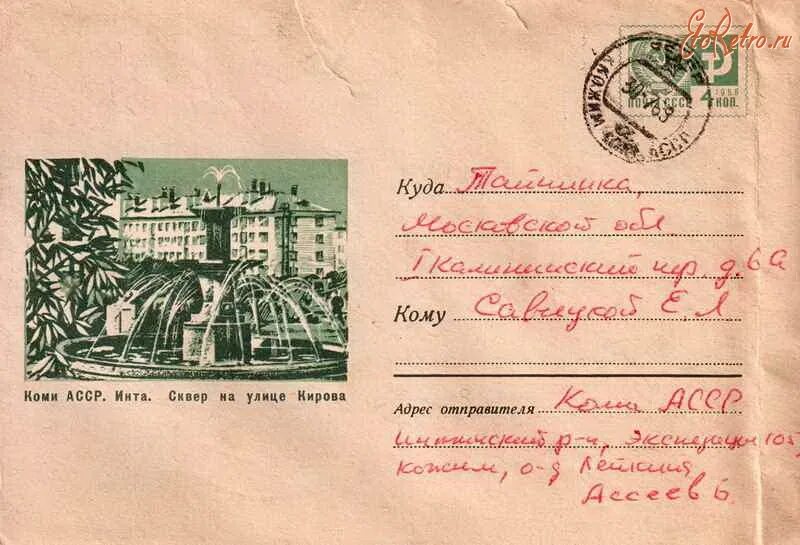 EtoRetro.ru
ПОЧТА СССР 4 КОП.
1966
КОЖИМ КОМИ АССР
Коми АССР. Инта. Сквер на улице Кирова
Куда Тайнинка,
Московской обл
I Калининский пер д. 6а
Кому Савицкой Е. Л
Адрес отправителя Коми АССР
Интинский р-н, Экспедиция 105,
Кожим, о-д Лепкина
Ассеев Б.